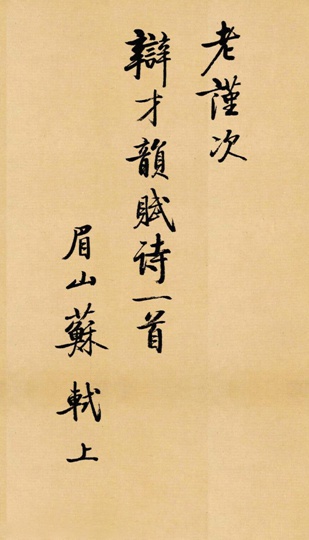 老謹次
辯才韻賦诗一首
眉山蘇軾上